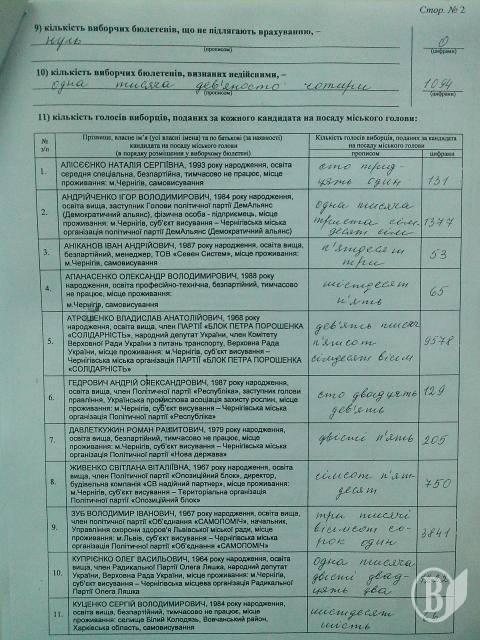 Стор. № 2
9) кількість виборчих бюлетенів, що не підлягають врахуванню, –
нуль
0
(прописом)
(цифрами)
10) кількість виборчих бюлетенів, визнаних недійсними, –
одна тисяча дев'яносто чотири
1094
(прописом)
(цифрами)
11) кількість голосів виборців, поданих за кожного кандидата на посаду міського голови:
№ з/п
Прізвище, власне ім'я (усі власні імена) та по батькові (за наявності)
кандидата на посаду міського голови
(в порядку розміщення у виборчому бюлетені)
Кількість голосів виборців, поданих за кандидата
на посаду міського голови
прописом
цифрами
1.
АЛІСЄЄНКО НАТАЛІЯ СЕРГІЇВНА, 1993 року народження, освіта
середня спеціальна, безпартійна, тимчасово не працює, місце
проживання: м.Чернігів, самовисування
сто трид-
цять один
131
2.
АНДРІЙЧЕНКО ІГОР ВОЛОДИМИРОВИЧ, 1984 року народження,
освіта вища, заступник Голови політичної партії ДемАльянс
(Демократичний альянс), фізична особа - підприємець, місце
проживання: м.Чернігів, суб'єкт висування – Чернігівська міська
організація політичної партії ДемАльянс (Демократичний альянс)
одна тисяча
триста сім-
десят сім
1377
3.
АНІКАНОВ ІВАН АНДРІЙОВИЧ, 1987 року народження, освіта вища,
безпартійний, менеджер, ТОВ «Севен Систем», місце проживання:
м.Чернігів, самовисування
п'ятдесят
три
53
4.
АПАНАСЕНКО ОЛЕКСАНДР ВОЛОДИМИРОВИЧ, 1988 року
народження, освіта професійно-технічна, безпартійний, тимчасово
не працює, місце проживання:
м.Чернігів, самовисування
шістдесят
п'ять
65
5.
АТРОШЕНКО ВЛАДИСЛАВ АНАТОЛІЙОВИЧ, 1968 року
народження, освіта вища, член ПАРТІЇ «БЛОК ПЕТРА ПОРОШЕНКА
«СОЛІДАРНІСТЬ», народний депутат України, член Комітету
Верховної Ради України з питань транспорту, Верховна Рада
України, місце проживання: м.Чернігів, суб'єкт висування –
Чернігівська міська організація ПАРТІЇ «БЛОК ПЕТРА ПОРОШЕНКА
«СОЛІДАРНІСТЬ»
дев'ять тисяч
п'ятсот
сімдесят вісім
9578
6.
ГЕДРОВИЧ АНДРІЙ ОЛЕКСАНДРОВИЧ, 1987 року народження,
освіта вища, член Політичної партії «Республіка», заступник голови
правління, Українська промислова асоціація захисту рослин, місце
проживання: м.Чернігів, суб'єкт висування – Чернігівська міська
організація Політичної партії «Республіка»
сто двадцять
дев'ять
129
7.
ДАВЛЕТКУЖИН РОМАН РАШИТОВИЧ, 1979 року народження,
освіта вища, безпартійний, тимчасово не працює, місце
проживання: м.Чернігів, суб'єкт висування – Чернігівська міська
організація Політичної партії «Нова держава»
двісті п'ять
205
8.
ЖИВЕНКО СВІТЛАНА ВІТАЛІЇВНА, 1967 року народження, освіта
вища, член Політичної партії «Опозиційний блок», директор,
будівельна компанія «СВ надійний партнер», місце проживання:
м.Чернігів, суб'єкт висування – Територіальна організація
Політичної партії «Опозиційний блок»
сімсот п'ят-
десят
750
9.
ЗУБ ВОЛОДИМИР ІВАНОВИЧ, 1967 року народження, освіта вища,
член політичної партії «Об'єднання «САМОПОМІЧ», начальник,
Управління охорони здоров'я Львівської міської ради, місце
проживання: м.Львів, суб'єкт висування – Чернігівська міська
організація Політичної партії «Об'єднання «САМОПОМІЧ»
три тисячі
вісімсот со-
рок один
3841
10.
КУПРІЄНКО ОЛЕГ ВАСИЛЬОВИЧ, 1964 року народження, освіта
вища, член Радикальної Партії Олега Ляшка, народний депутат
України, Верховна Рада України, місце проживання: м.Чернігів,
суб'єкт висування – Чернігівська місцева організація Радикальної
Партії Олега Ляшка
одна тисяча
двісті двад-
цять два
11.
КУЦЕНКО СЕРГІЙ ВОЛОДИМИРОВИЧ, 1984 року народження,
освіта вища, безпартійний, тимчасово не працює, місце
проживання: селище Білий Колодязь, Вовчанський район,
Харківська область, самовисування
шістдесят
шість